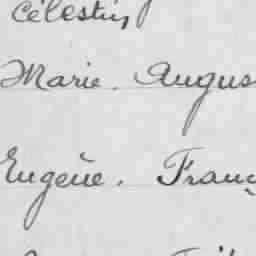 Célestin
Marie. Augus
Eugène. Franç